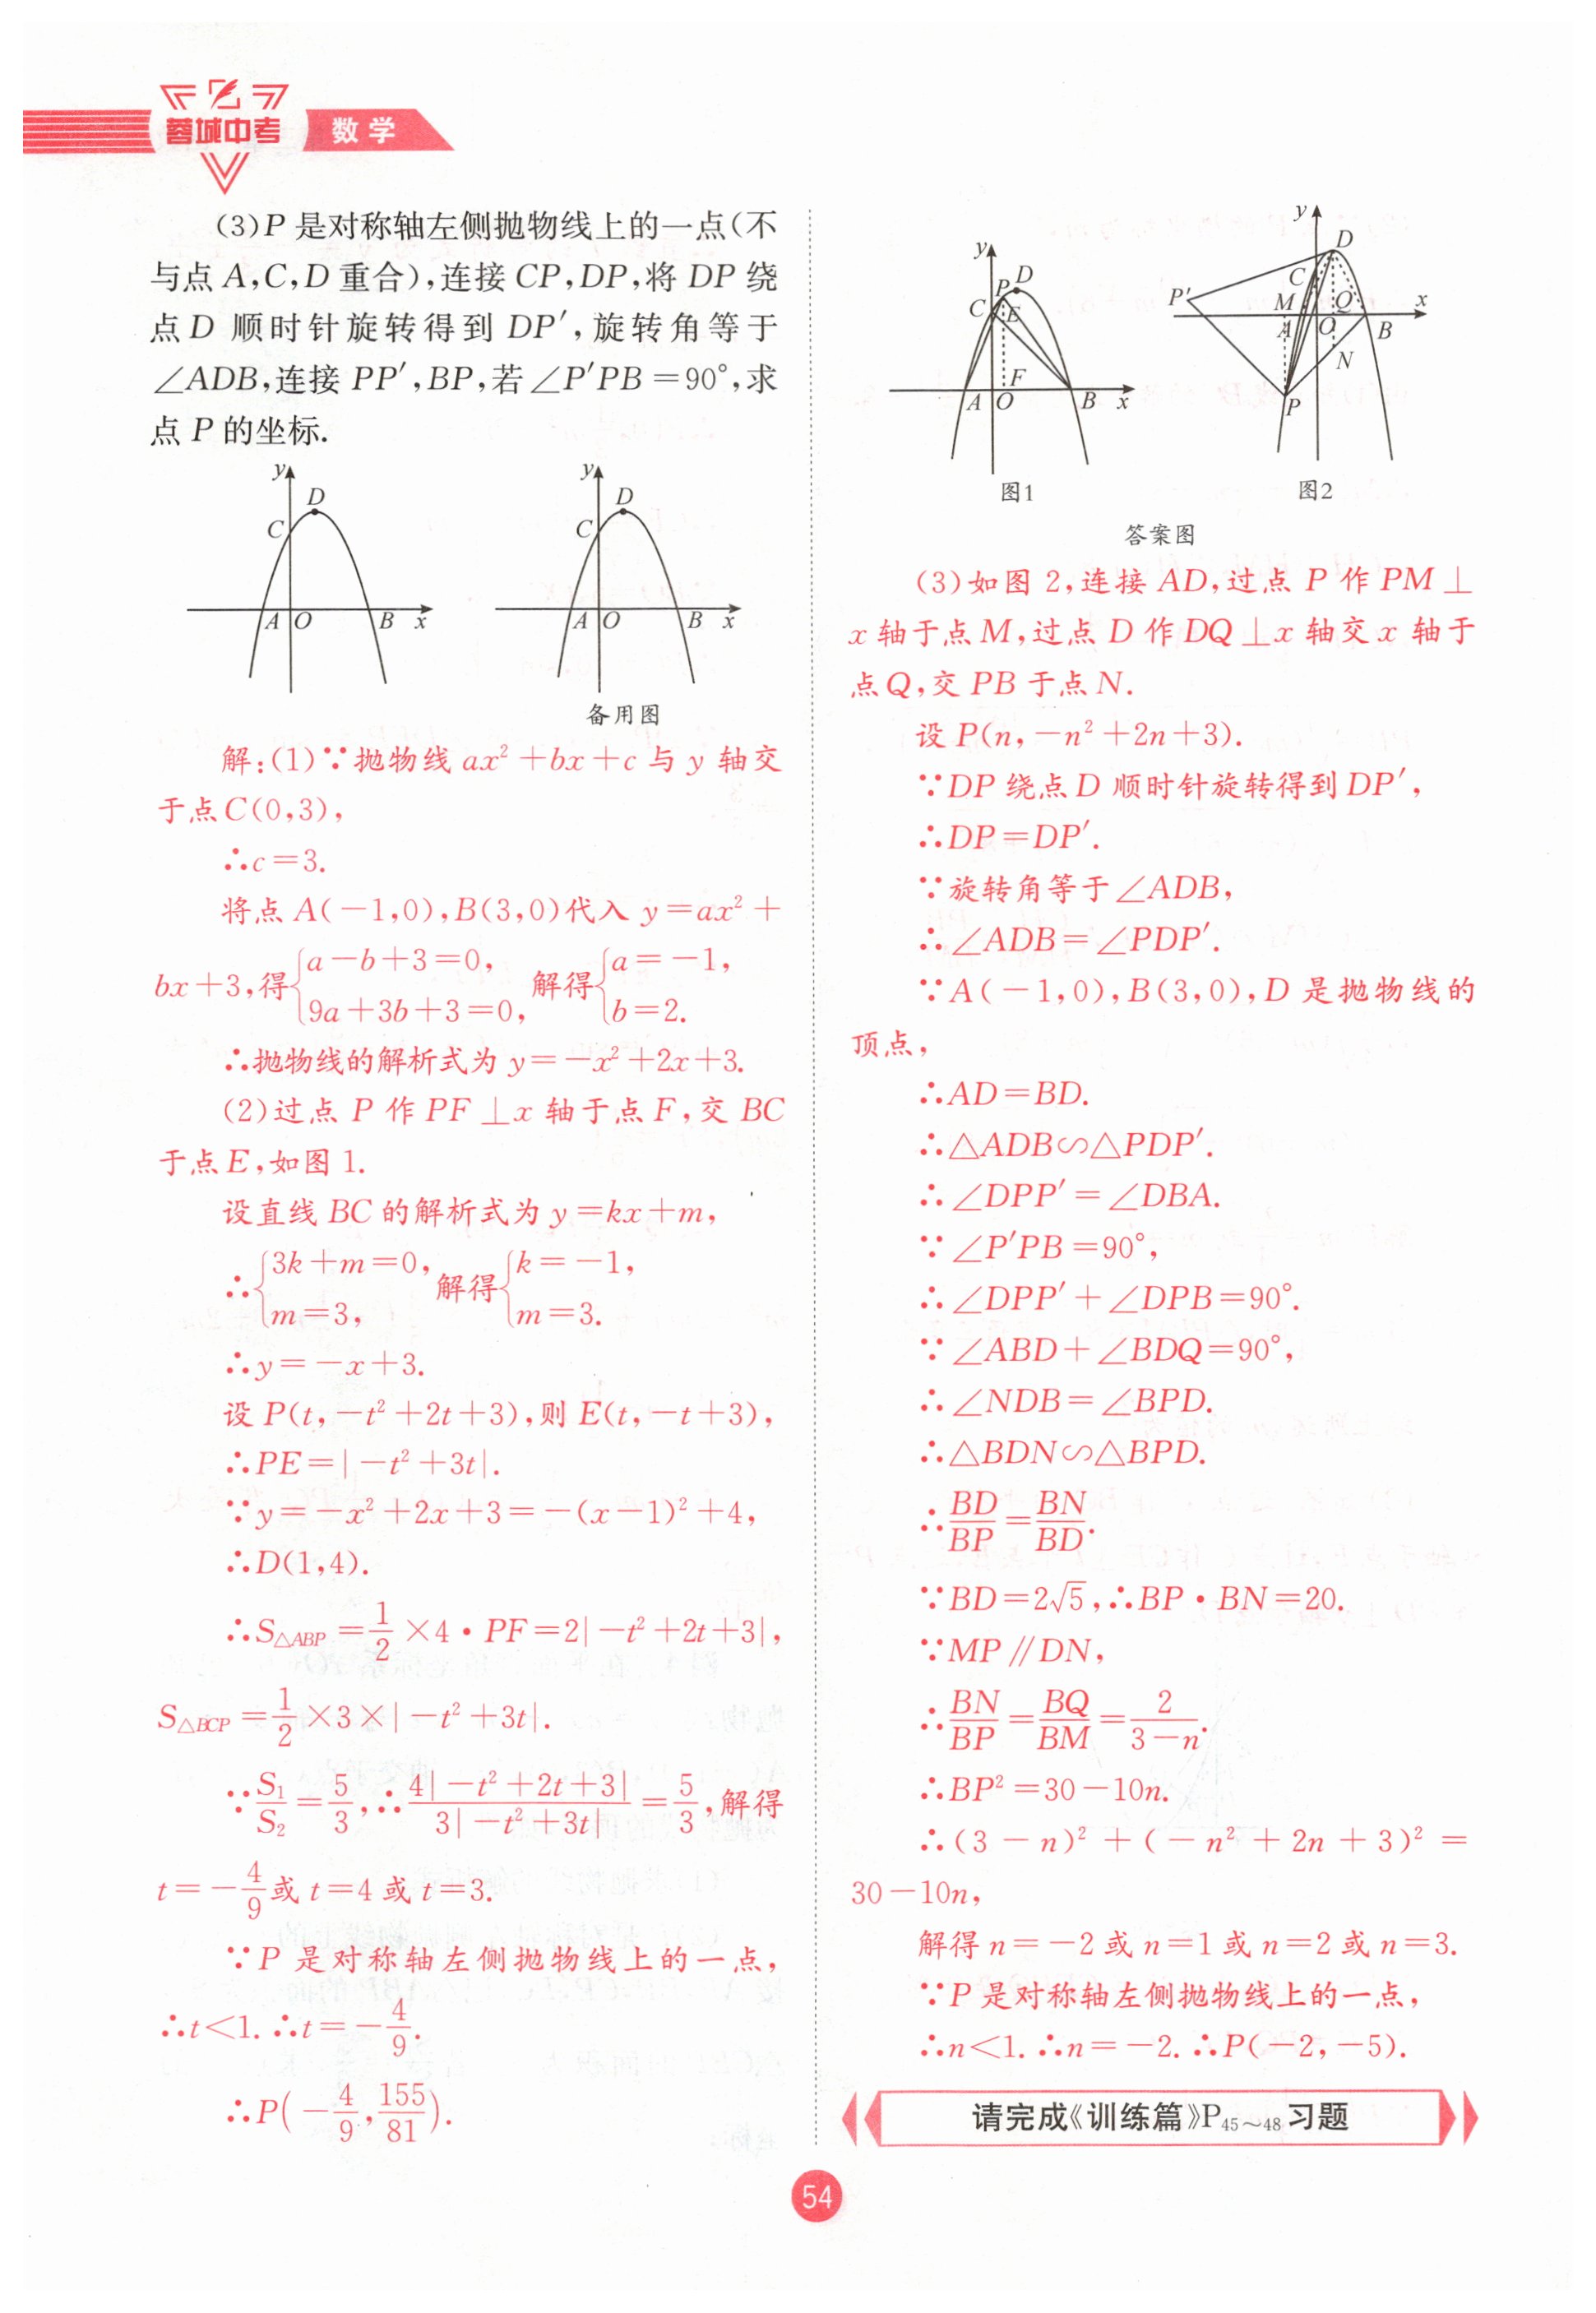 蓉城中考 数学
(3)P 是对称轴左侧抛物线上的一点(不
与点 A,C,D 重合),连接 CP,DP,将 DP 绕
点 D 顺时针旋转得到 DP′,旋转角等于
∠ADB,连接 PP′,BP,若∠P′PB=90°,求
点 P 的坐标.
y D C A O B x
y D C A O B x
备用图
解:(1)∵抛物线 ax²+bx+c 与 y 轴交
于点 C(0,3),
∴c=3.
将点 A(-1,0),B(3,0)代入 y=ax²+
bx+3,得{a-b+3=0, 9a+3b+3=0, 解得{a=-1, b=2.
∴抛物线的解析式为 y=-x²+2x+3.
(2)过点 P 作 PF⊥x 轴于点 F,交 BC
于点 E,如图 1.
设直线 BC 的解析式为 y=kx+m,
∴{3k+m=0, m=3, 解得{k=-1, m=3.
∴y=-x+3.
设 P(t,-t²+2t+3),则 E(t,-t+3),
∴PE=|-t²+3t|.
∵y=-x²+2x+3=-(x-1)²+4,
∴D(1,4).
∴S△ABP=1/2×4·PF=2|-t²+2t+3|,
S△BCP=1/2×3×|-t²+3t|.
∵S₁/S₂=5/3,∴4|-t²+2t+3|/3|-t²+3t|=5/3,解得
t=-4/9或 t=4 或 t=3.
∵P 是对称轴左侧抛物线上的一点,
∴t<1.∴t=-4/9.
∴P(-4/9,155/81).
y P D C E F A O B x
图1
y D C P′ M Q x A O B N P
图2
答案图
(3)如图 2,连接 AD,过点 P 作 PM⊥
x 轴于点 M,过点 D 作 DQ⊥x 轴交 x 轴于
点 Q,交 PB 于点 N.
设 P(n,-n²+2n+3).
∵DP 绕点 D 顺时针旋转得到 DP′,
∴DP=DP′.
∵旋转角等于∠ADB,
∴∠ADB=∠PDP′.
∵A(-1,0),B(3,0),D 是抛物线的
顶点,
∴AD=BD.
∴△ADB∽△PDP′.
∴∠DPP′=∠DBA.
∵∠P′PB=90°,
∴∠DPP′+∠DPB=90°.
∵∠ABD+∠BDQ=90°,
∴∠NDB=∠BPD.
∴△BDN∽△BPD.
∴BD/BP=BN/BD.
∵BD=2√5,∴BP·BN=20.
∵MP∥DN,
∴BN/BP=BQ/BM=2/3-n.
∴BP²=30-10n.
∴(3-n)²+(-n²+2n+3)²=
30-10n,
解得 n=-2 或 n=1 或 n=2 或 n=3.
∵P 是对称轴左侧抛物线上的一点,
∴n<1.∴n=-2.∴P(-2,-5).
请完成《训练篇》P45~48习题
54